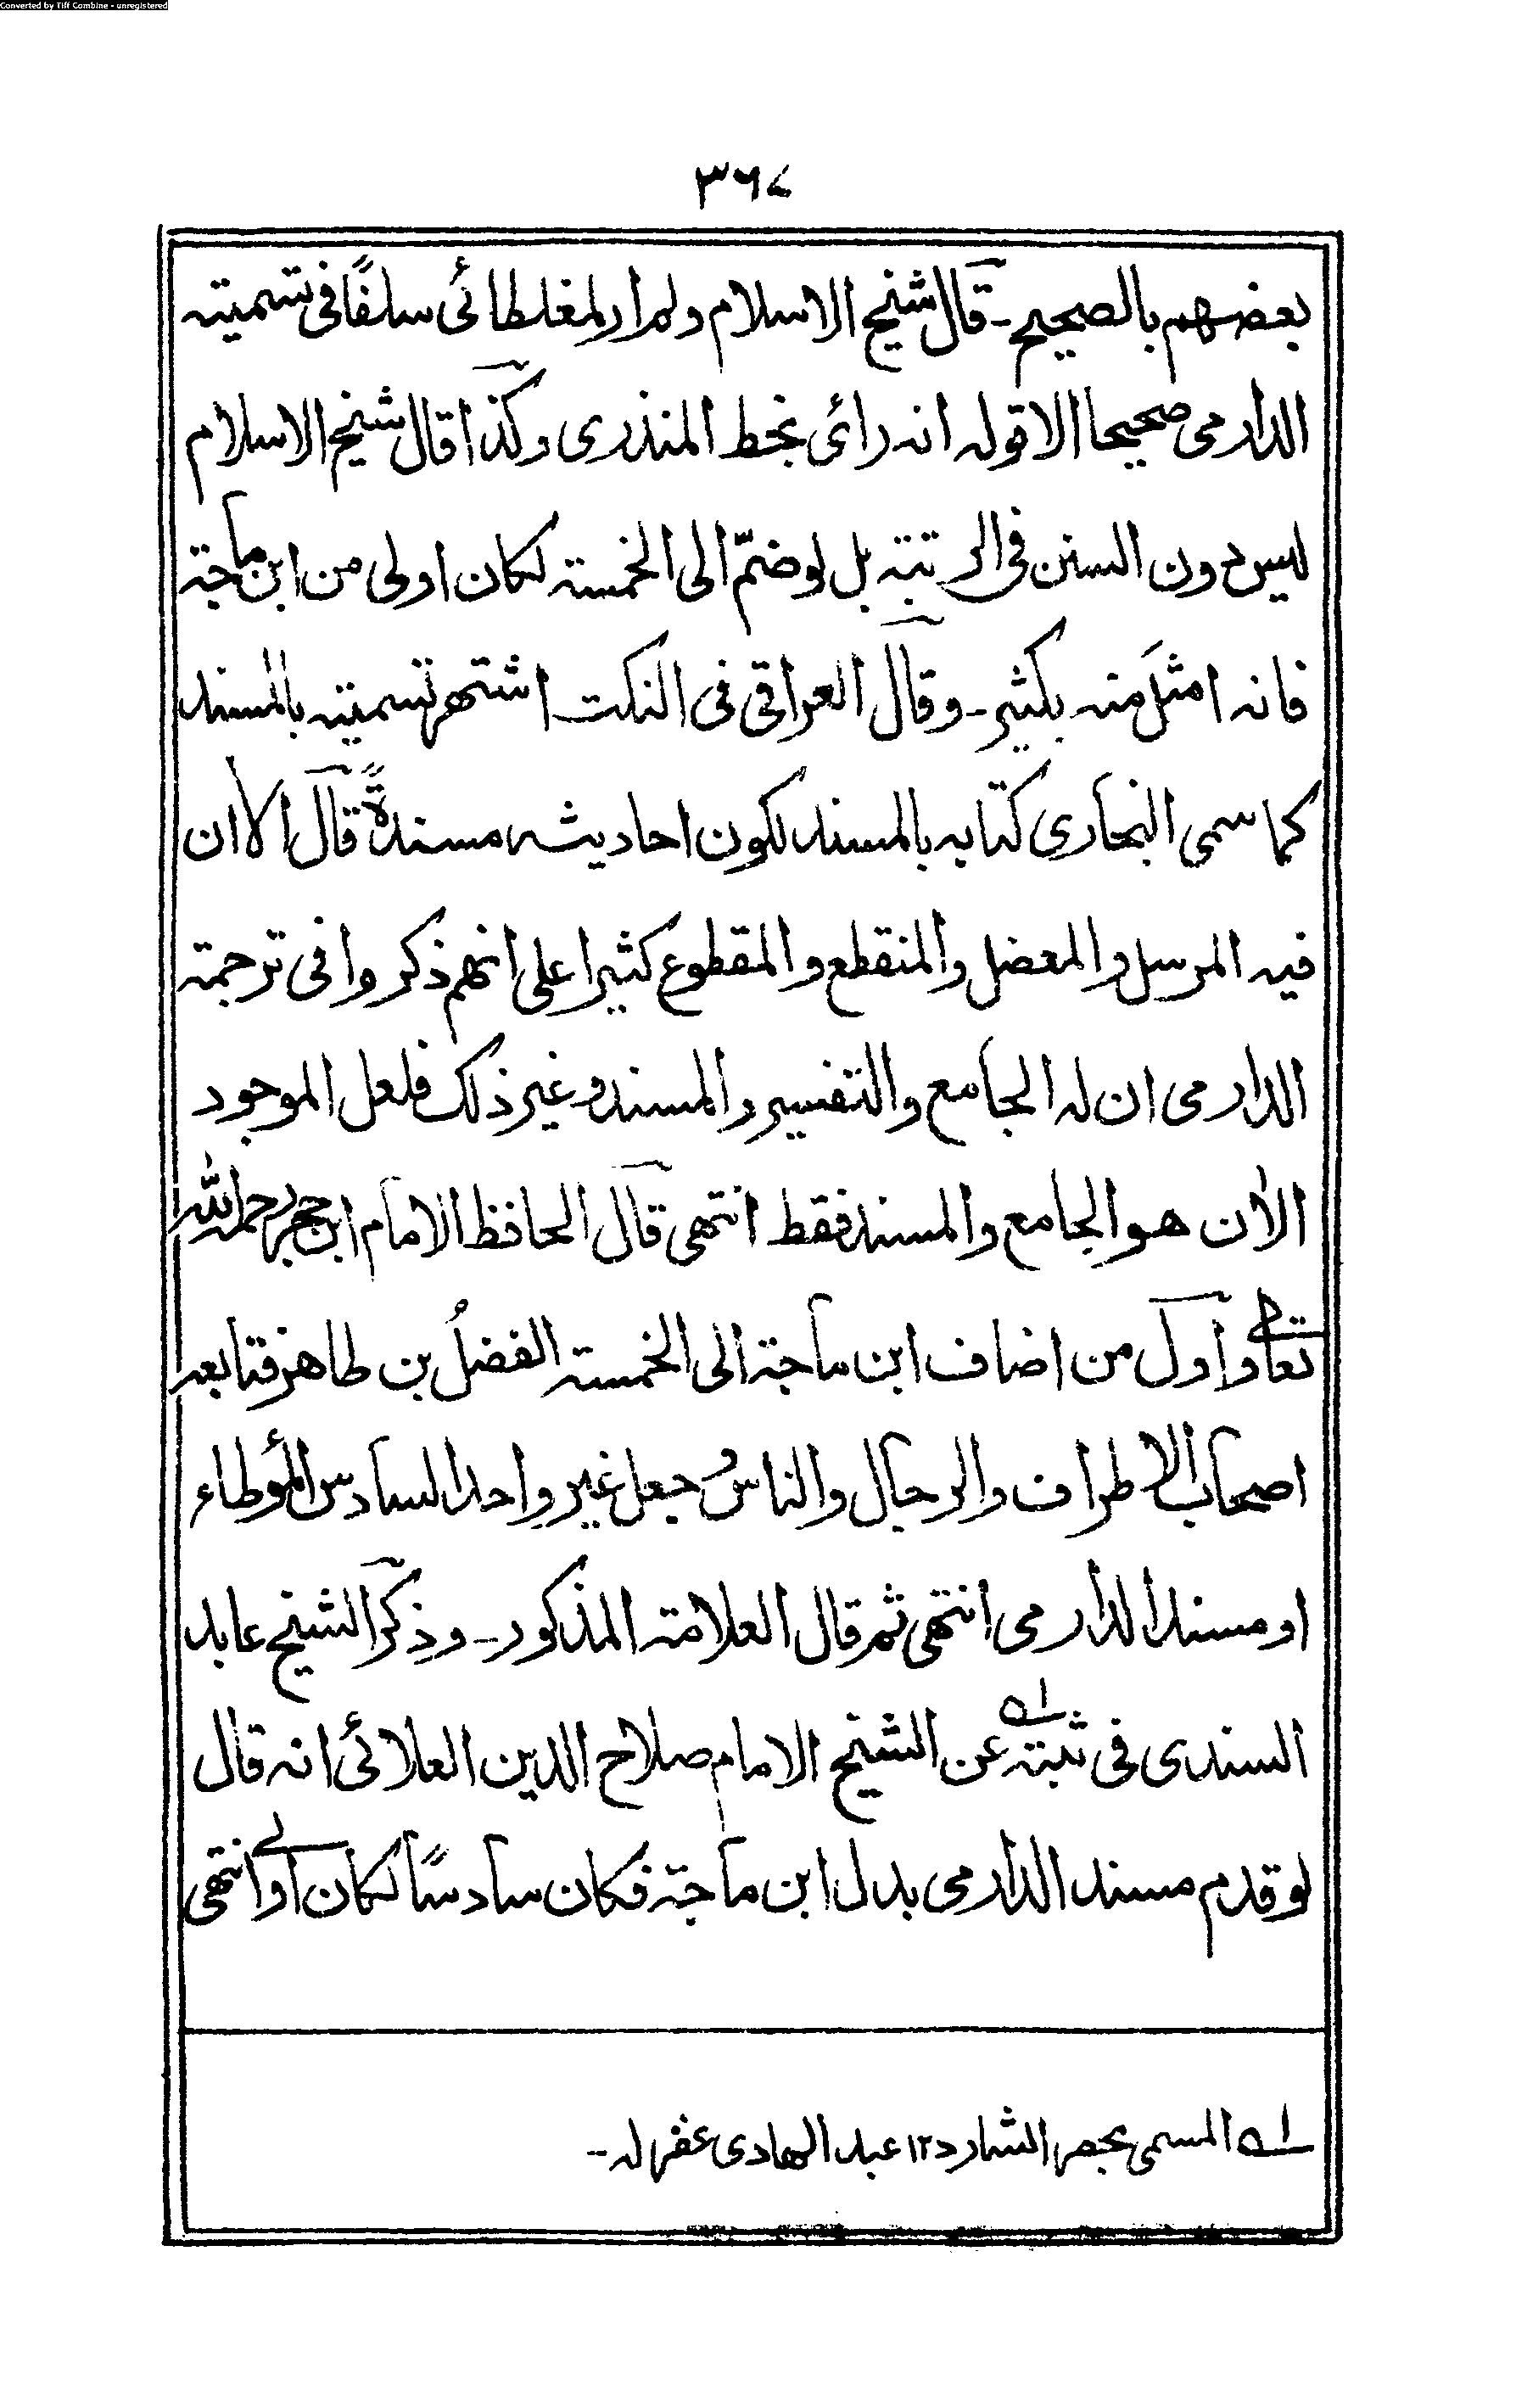 Converted by Tiff Combine - unregistered
٣٦٧
بعضهم بالصحيح ـ قال شيخ الاسلام ولم ار لمغلطائى سلفًا فى تسميته
الدارمى صحيحا الا قوله انه رائى بخط المنذرى وكذا قال شيخ الاسلام
ليس دون السنن فى الرتبته بل لو ضمّ الى الخمسته لكان اولى من ابن ماجته
فانه امثلَ منه بكثير ـ وقال العراقى فى النكت اشتهر تسميته بالمسند
كما سمى البخارى كتابه بالمسند لكون احاديثه مسندةً قال الا ان
فيه المرسل والمعضل والمنقطع والمقطوع كثيرا على انهم ذكروا فى ترجمته
الدارمى ان له الجامع والتفسير والمسند وغير ذلك فلعل الموجود
الاٰن هو الجامع والمسند فقط انتهى قال الحافظ الامام ابن حجر رحمه الله
تعالى واول من اضاف ابن ماجته الى الخمسته الفضلُ بن طاهر فتابعه
اصحاب الاطراف والرجال والناس وجعل غير واحد السادس المؤطاء
او مسند الدارمى انتهى ثم قال العلامته المذكور ـ وذكر الشيخ عابد
السندى فى ثبته لـه عن الشيخ الامام صلاح الدين العلائى انه قال
لو قدم مسند الدارمى بدل ابن ماجته فكان سادسًا لكان اولى انتهى
لـه المسمى بحصر الشارد ١٢ عبد الهادى غفر له ـ